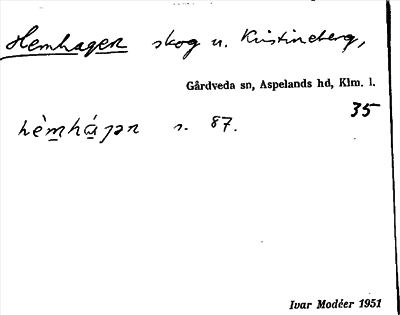 Hemhagen skog u. Kristineberg,
Gårdveda sn, Aspelands hd, Klm. l.
35
hè̀mhá̱ɡən s. 87.
Ivar Modéer 1951